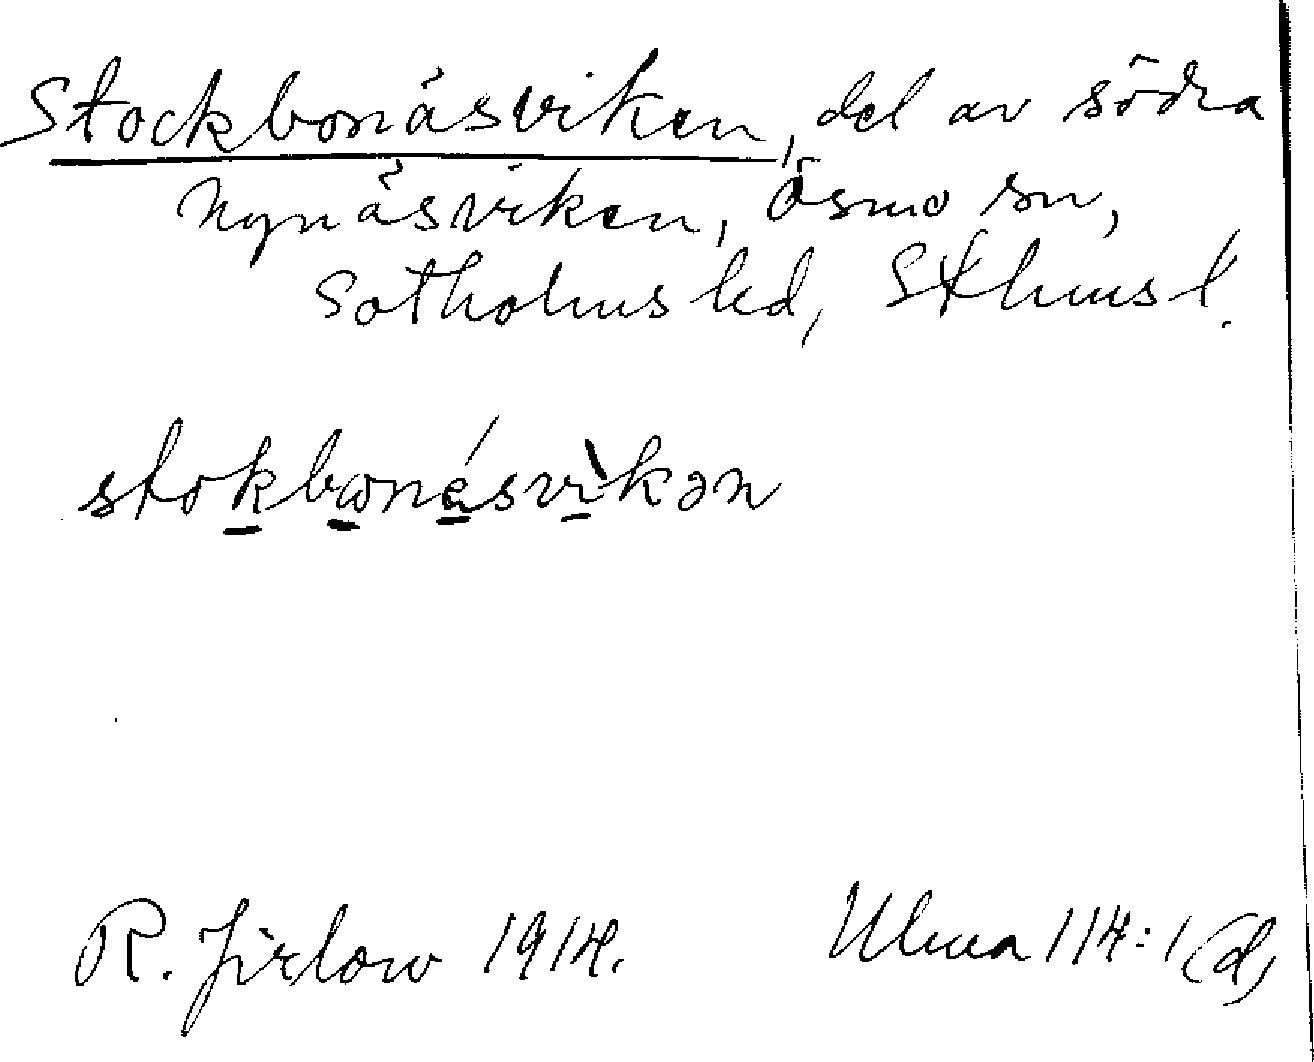 Stockbonäsviken, del av södra
Nynäsviken, Ösmo sn,
Sotholms hd, Sthms l.
stokbonäsvikən
R. Jirlow 1914.
Ulma 114:1(d)